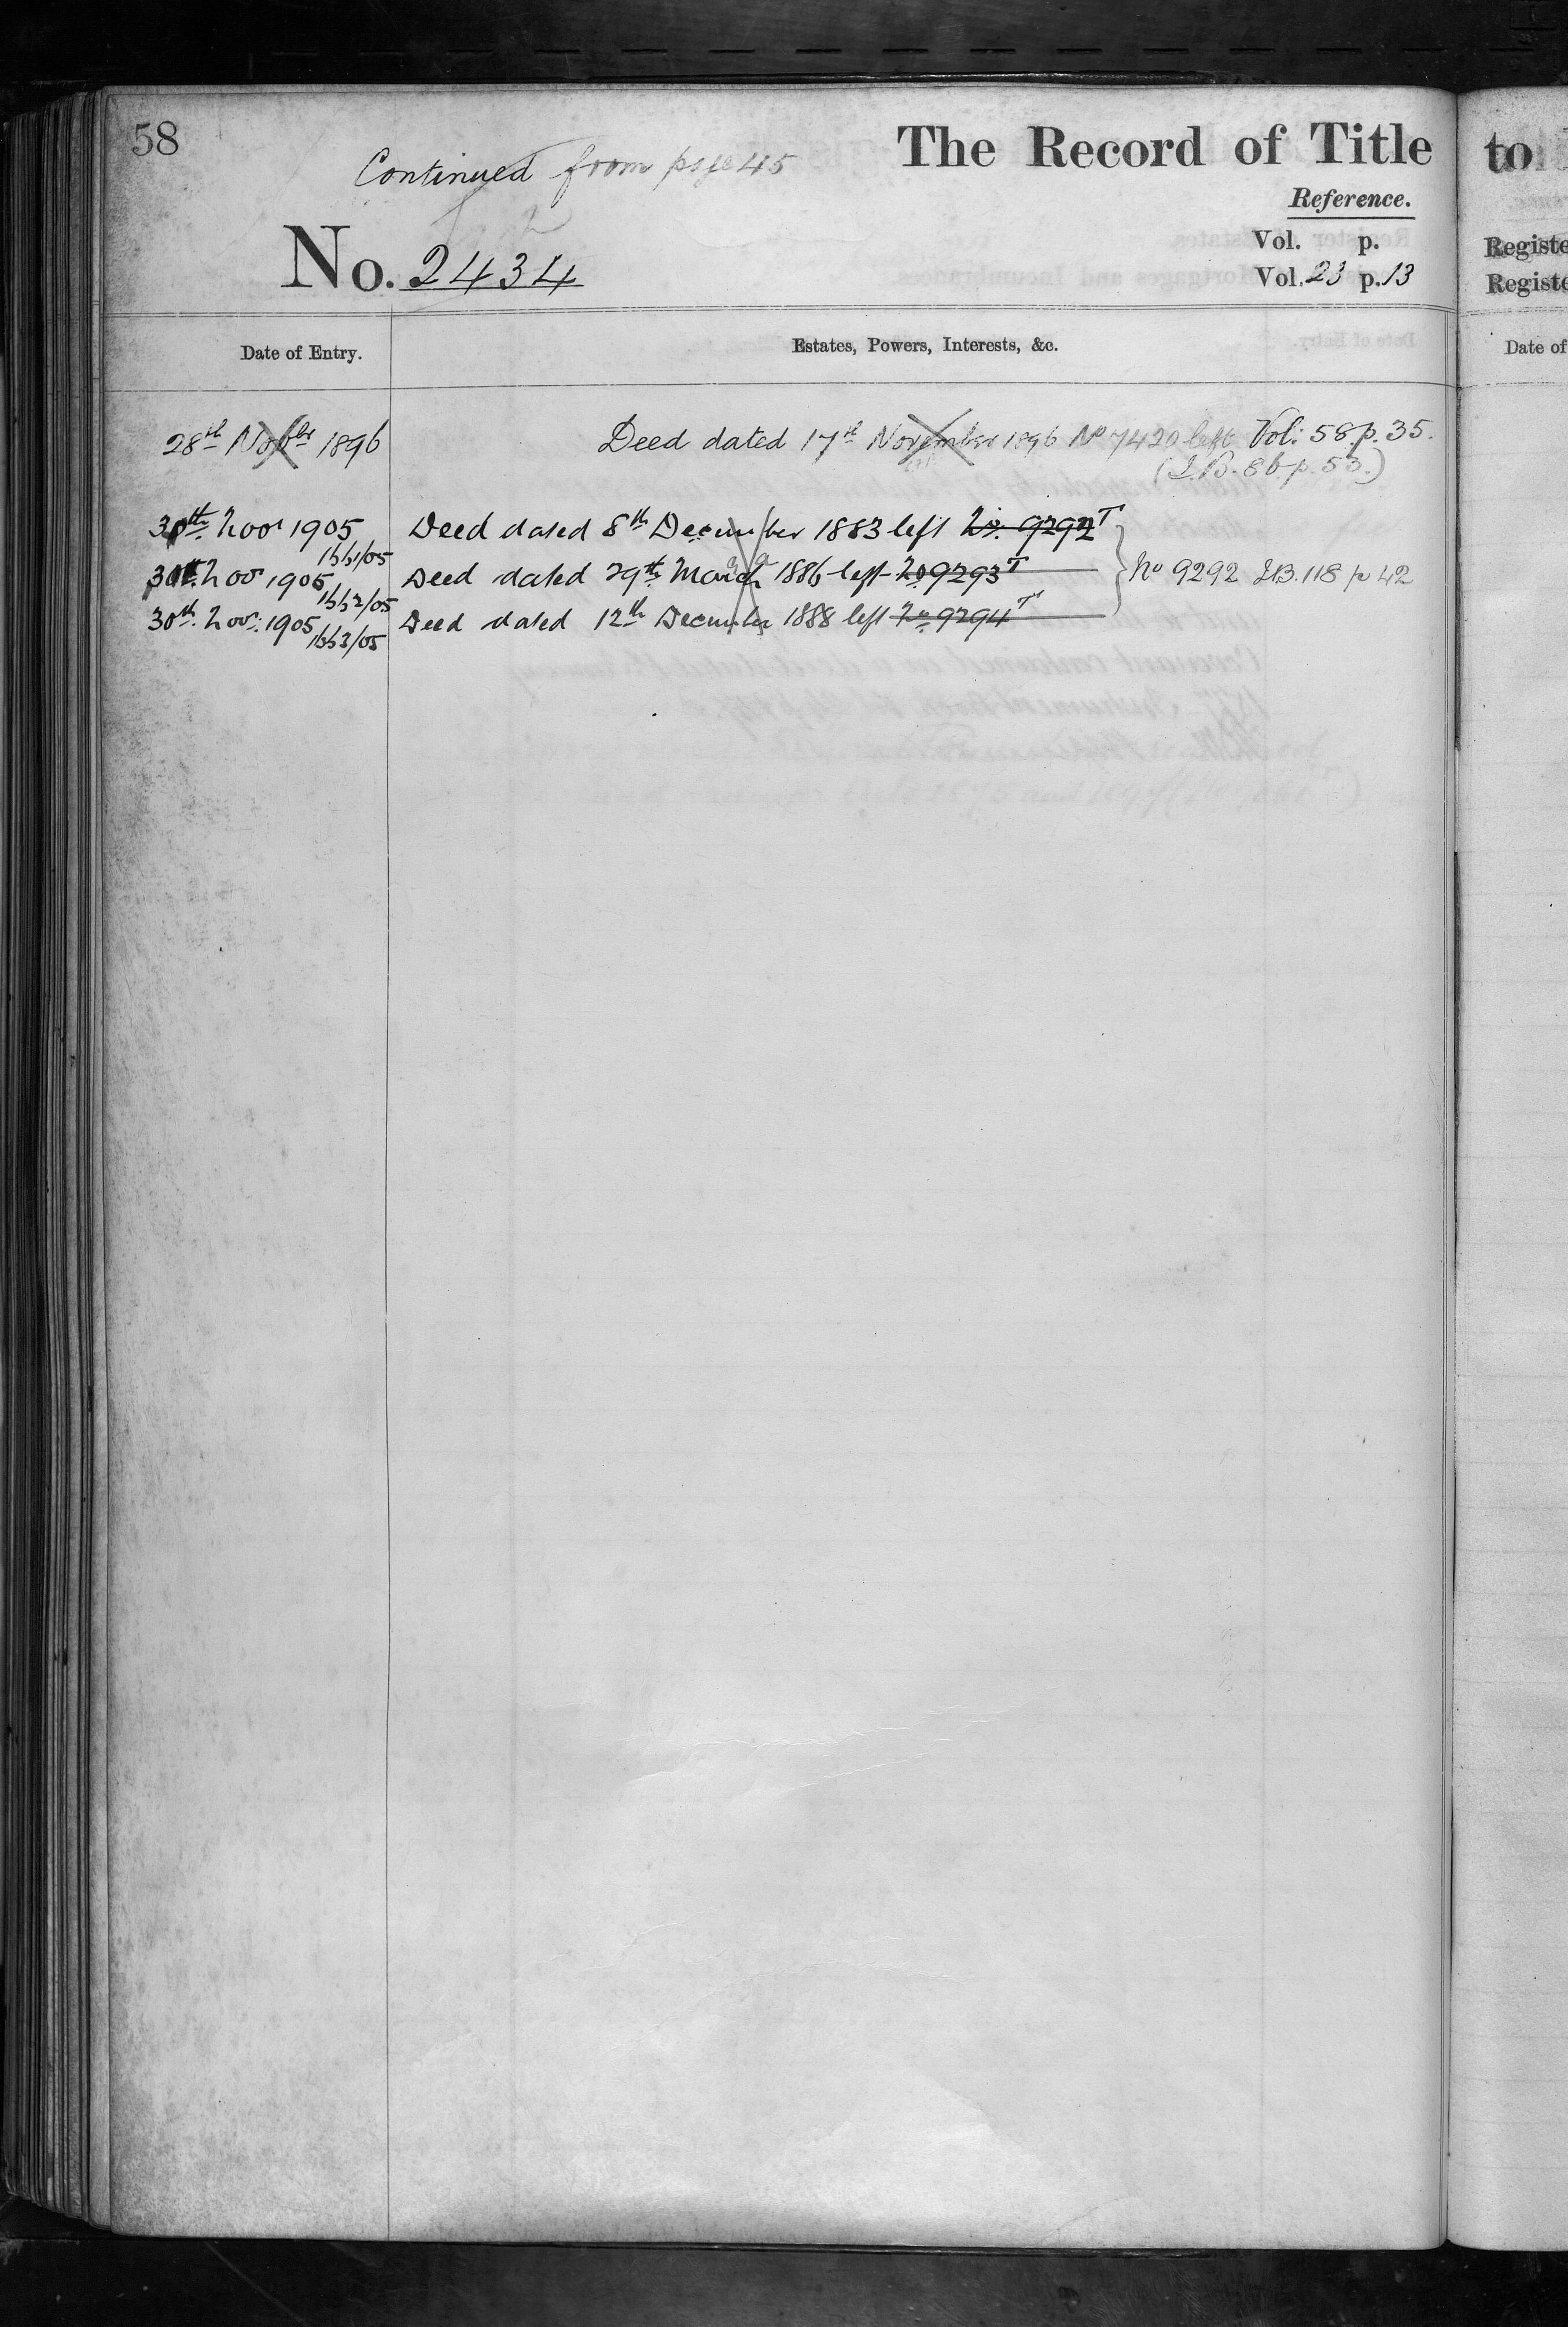 58
Continued from page 45
The Record of Title
Reference.
No. 2434
Vol. p.
Vol. 23 p. 13
Date of Entry.
Estates, Powers, Interests, &c.
28th Novbr 1896 Deed dated 17th November 1896 No 7420 left Vol: 58 p. 35.
(I.B. 86 p. 53.)
30th Novr 1905 Deed dated 8th December 1883 left No. 9292 T
1661/05
30th Novr 1905 Deed dated 29th March 1886 left No 9293 T No 9292 I.B. 118 p 42
1662/05
30th Novr: 1905 Deed dated 12th December 1888 left No 9294 T
1663/05
to
Registe
Registe
Date of